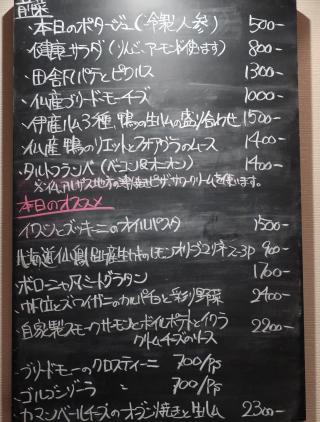 前菜
・本日のポタージュ(冷製人参) 500-
・健康サラダ(りんご、アーモンド使ます) 800-
・田舎風パテとピクルス 1300-
・仏産ブリードモーチーズ 1000-
・伊産ハム3種、鴨の生ハムの盛り合わせ 1500-
・仏産 鴨のリエットとフォアグラのムース 1400-
・タルトフランベ(ベーコン&オニオン) 1400-
アルザス地方の薄焼きピザ、サワークリームを使います。
本日のオススメ
・イワシとズッキーニのオイルパスタ 1500-
・北海道仙鳳趾産生ガキのレモンオリーブユリネ 2コ 900-
・ボローニャ風ミートグラタン 1760-
・帆立とズワイガニのカルパッチョと彩り野菜 2400-
・自家製スモークサーモンとボイルポテトとイクラ 2200-
クリームチーズのソース
・ブリードモーのクロスティーニ 700/Ps
・ゴルゴンゾーラ 〃 700/Ps
・カマンベールチーズのオーブン焼きと生ハム 2300-